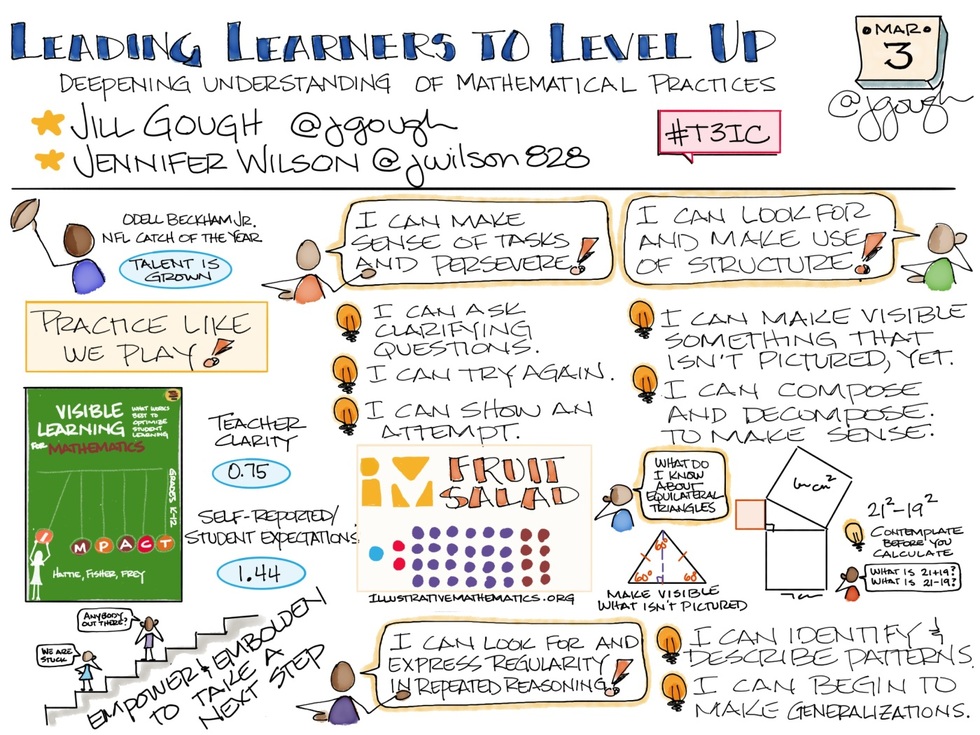 LEADING LEARNERS TO LEVEL UP
DEEPENING UNDERSTANDING OF MATHEMATICAL PRACTICES
JILL GOUGH @jgough
JENNIFER WILSON @jwilson828
#T3IC
MAR
3
@jgough
ODELL BECKHAM JR.
NFL CATCH OF THE YEAR
TALENT IS
GROWN
PRACTICE LIKE
WE PLAY!
VISIBLE
LEARNING
FOR MATHEMATICS
WHAT WORKS
BEST TO
OPTIMIZE
STUDENT
LEARNING
GRADES K-12
IMPACT
HATTIE, FISHER, FREY
TEACHER
CLARITY
0.75
SELF-REPORTED/
STUDENT EXPECTATIONS
1.44
ANYBODY
OUT THERE?
WE ARE
STUCK
EMPOWER & EMBOLDEN
TO TAKE A
NEXT STEP
I CAN MAKE
SENSE OF TASKS
AND PERSEVERE!
I CAN ASK
CLARIFYING
QUESTIONS.
I CAN TRY AGAIN.
I CAN SHOW AN
ATTEMPT.
IM FRUIT
SALAD
ILLUSTRATIVEMATHEMATICS.ORG
I CAN LOOK FOR
AND MAKE USE
OF STRUCTURE!
I CAN MAKE VISIBLE
SOMETHING THAT
ISN'T PICTURED, YET.
I CAN COMPOSE
AND DECOMPOSE
TO MAKE SENSE.
WHAT DO
I KNOW
ABOUT
EQUILATERAL
TRIANGLES
60°
60°
60°
MAKE VISIBLE
WHAT ISN'T PICTURED
21²-19²
CONTEMPLATE
BEFORE YOU
CALCULATE
WHAT IS 21+19?
WHAT IS 21-19?
I CAN LOOK FOR AND
EXPRESS REGULARITY
IN REPEATED REASONING!
I CAN IDENTIFY &
DESCRIBE PATTERNS.
I CAN BEGIN TO
MAKE GENERALIZATIONS.